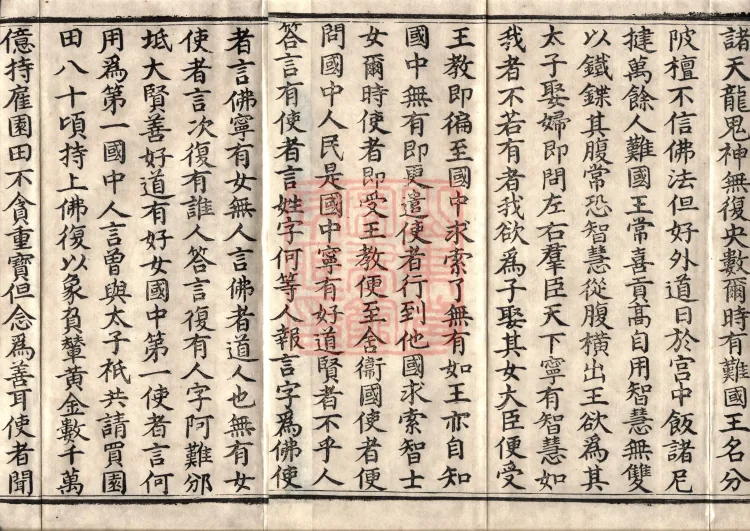 諸天龍鬼神無復央數爾時有難國王名分
陂檀不信佛法但好外道日於宮中飯諸尼
揵萬餘人難國王常喜貢高自用智慧無雙
以鐵鍱其腹常恐智慧從腹橫出王欲為其
太子娶婦即問左右羣臣天下寧有智慧如
我者不若有者我欲為子娶其女大臣便受
王教即徧至國中求索了無有如王亦自知
國中無有即更遣使者行到他國求索智士
女爾時使者即受王教便至舍衛國使者便
問國中人民是國中寧有好道賢者不乎人
答言有使者言姓字何等人報言字為佛使
者言佛寧有女無人言佛者道人也無有女
使者言次復有誰人答言復有人字阿難邠
坻大賢善好道有好女國中第一使者言何
用為第一國中人言曾與太子祇共請買園
田八十頃持上佛復以象負輦黃金數千萬
億持雇園田不貪重寶但念為善耳使者聞